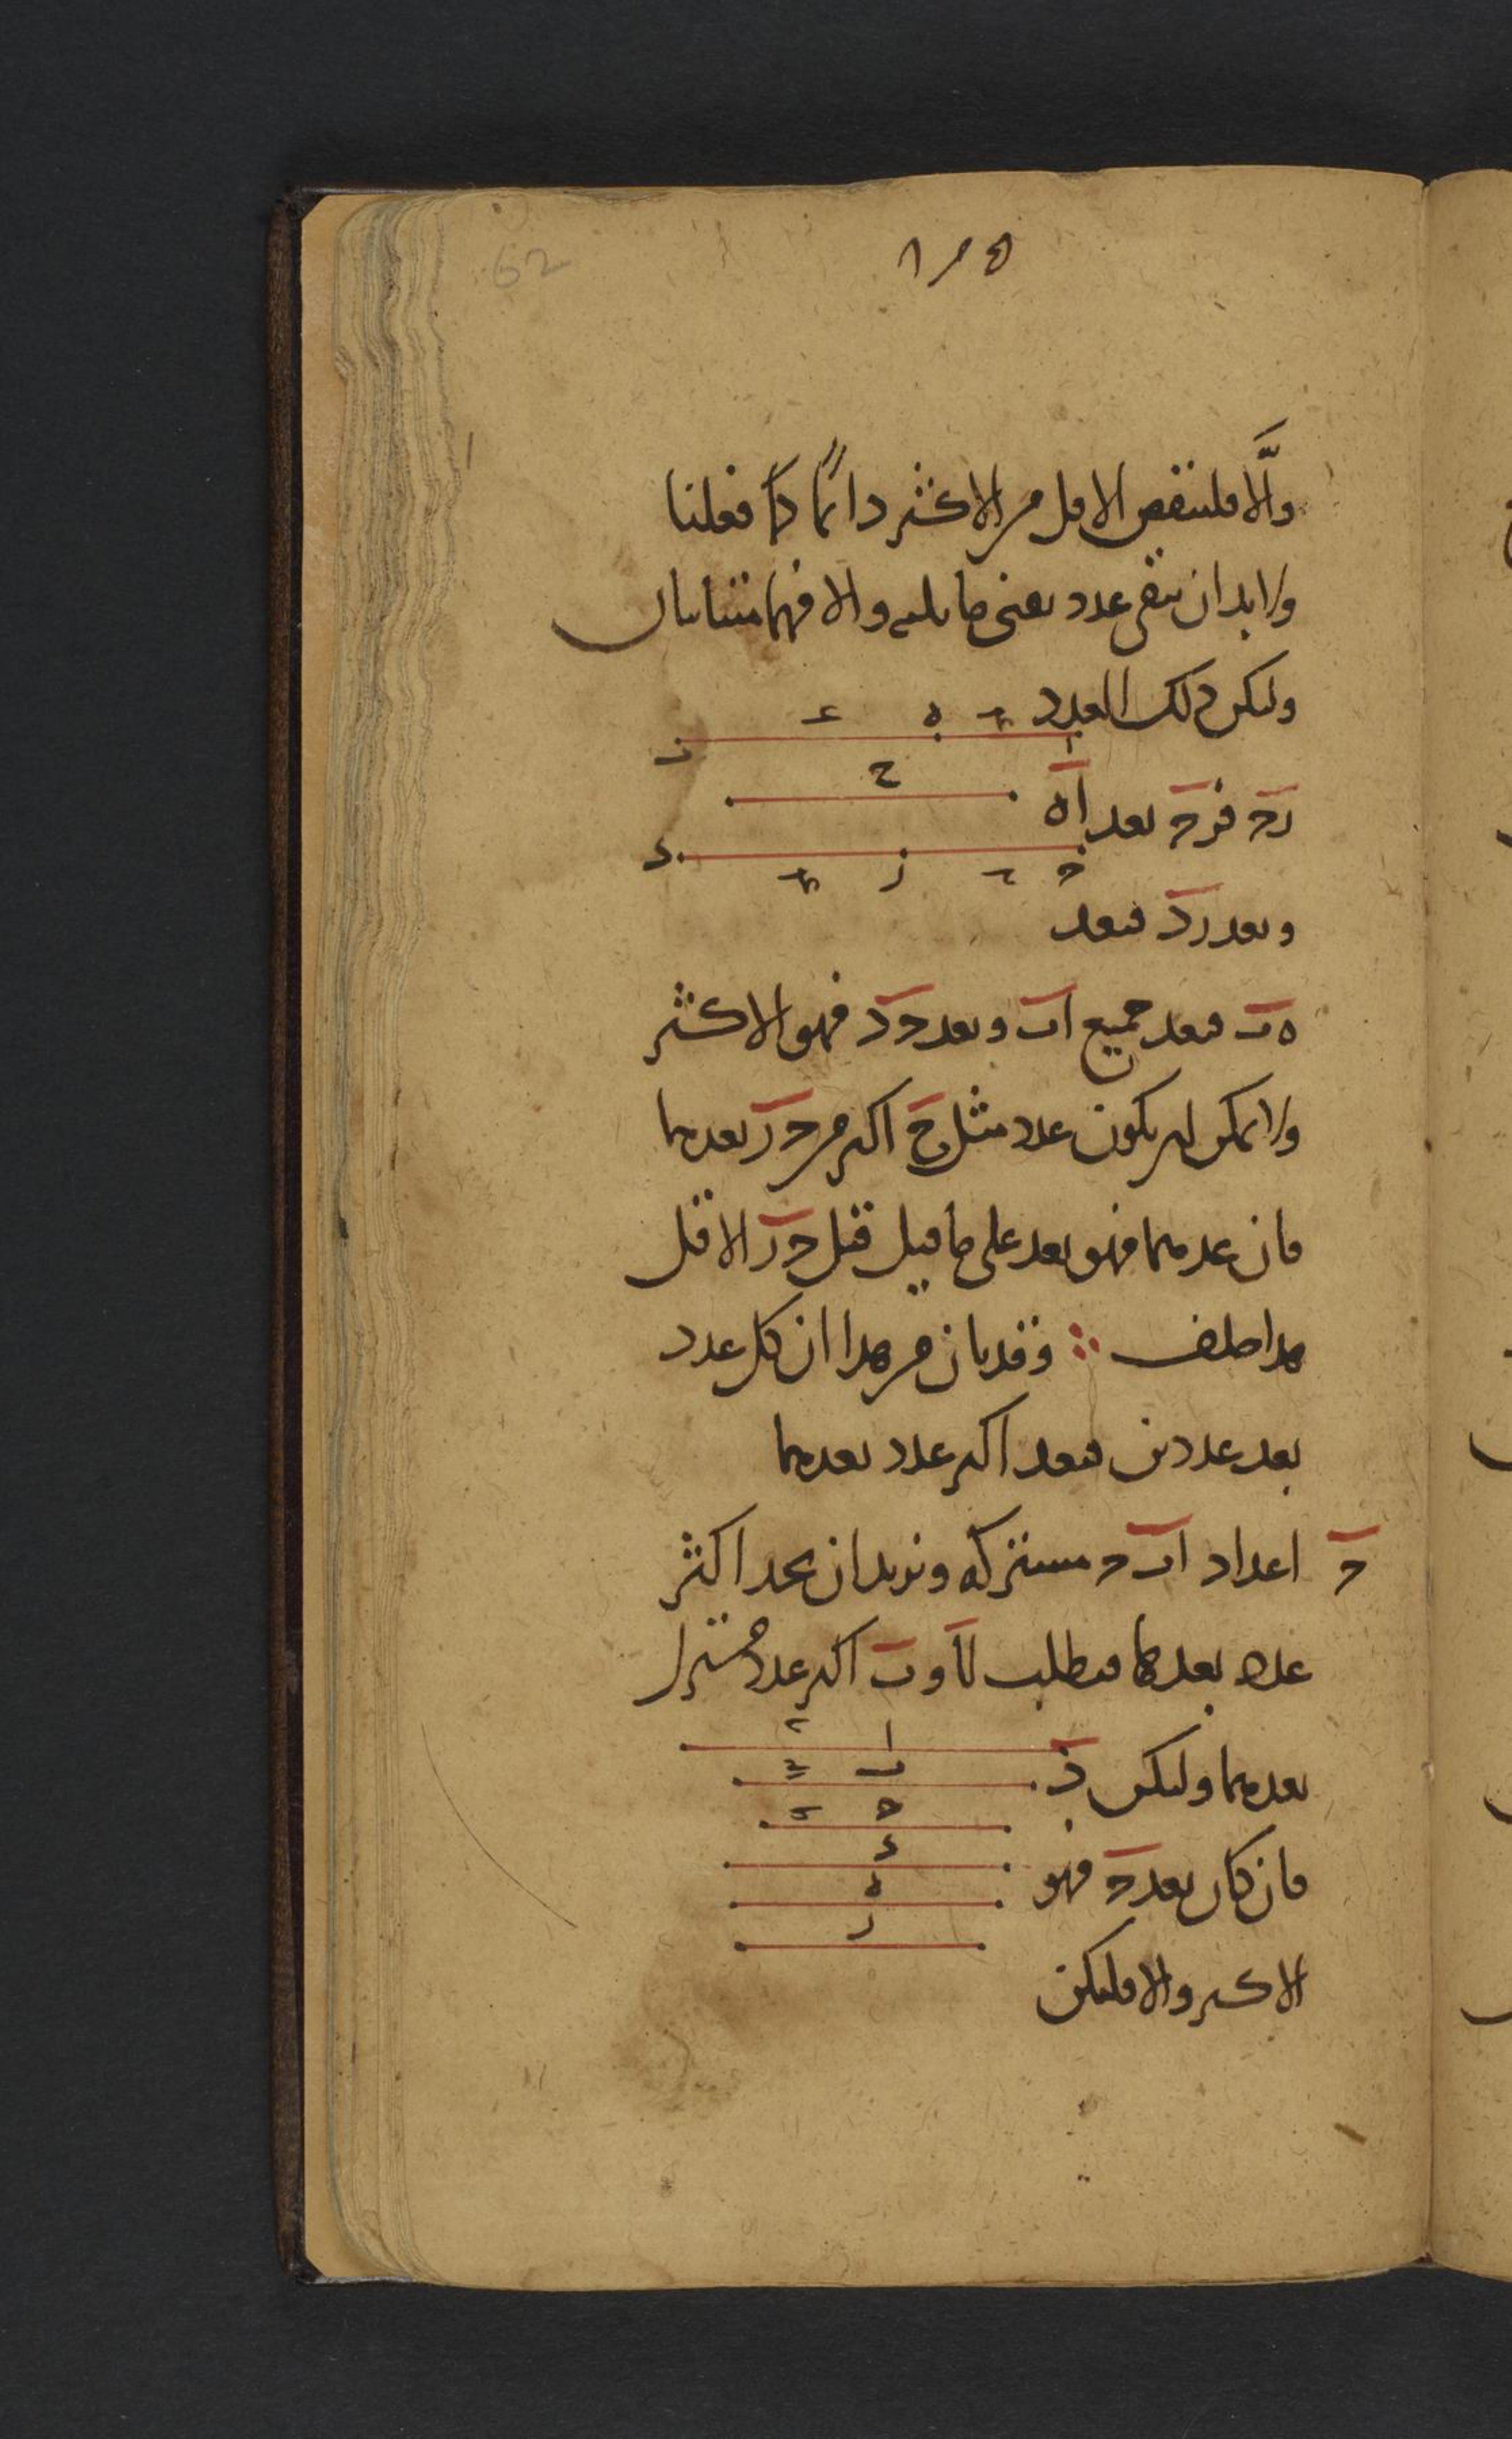 62
١٢٥
والا فلينقص الاقل من الاكثر دائما كما فعلنا
ولابد ان يبقى عدد يفنى ما يليه والا فهما متباينان
وليكن ذلك العدد
ب ه ا
ح
د ز ج
رح فرح يعد اه
ويعد رد فيعد
ه ب فيعد جميع اب ويعد ح د فهو الاكثر
ولا يمكن ان يكون عدد مثل ح اكبر من ح ر يعدهما
فان عدهما فهو يعد على ما قيل قبل ح ر الاقل
هذا خلف ∴ وقد بان من هذا ان كل عدد
يعد عددين فيعد اكبر عدد يعدهما
ح اعداد ا ب ح مشتركه ونريد ان نجد اكثر
عدد يعدها فيطلب لا و ب اكبر عدد مشترك
يعدهما وليكن د
ا
ب
ح
د
ه
ز
فان كان يعد ح فهو
الاكبر والا فليكن